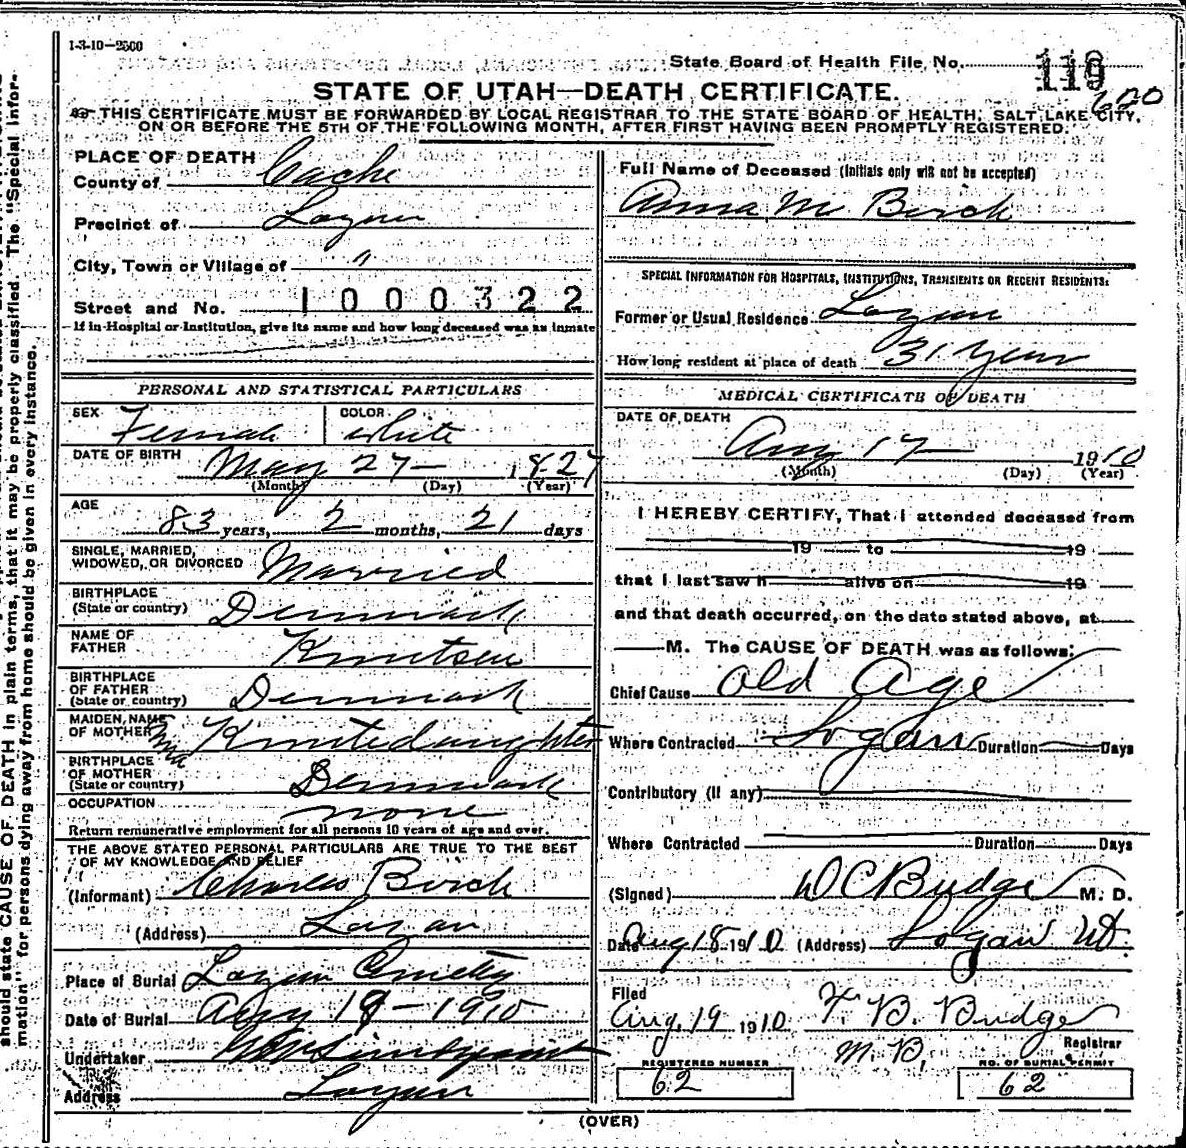 1-3-10-2500
State Board of Health File, No. 119
620
STATE OF UTAH—DEATH CERTIFICATE.
THIS CERTIFICATE MUST BE FORWARDED BY LOCAL REGISTRAR TO THE STATE BOARD OF HEALTH, SALT LAKE CITY,
ON OR BEFORE THE 5TH OF THE FOLLOWING MONTH, AFTER FIRST HAVING BEEN PROMPTLY REGISTERED.
PLACE OF DEATH
County of Cache
Precinct of Logan
City, Town or Village of "
Street and No. 1000322
If in Hospital or Institution, give its name and how long deceased was as inmate
PERSONAL AND STATISTICAL PARTICULARS
SEX Female COLOR white
DATE OF BIRTH May 27 — 1827
(Month) (Day) (Year)
AGE 83 years, 2 months, 21 days
SINGLE, MARRIED,
WIDOWED, OR DIVORCED Married
BIRTHPLACE
(State or country) Denmark
NAME OF
FATHER Knutsen
BIRTHPLACE
OF FATHER
(State or country) Denmark
MAIDEN NAME
OF MOTHER Knutedaughter
BIRTHPLACE
OF MOTHER
(State or country) Denmark
OCCUPATION none
Return remunerative employment for all persons 10 years of age and over.
THE ABOVE STATED PERSONAL PARTICULARS ARE TRUE TO THE BEST
OF MY KNOWLEDGE AND BELIEF
(Informant) Charles Birch
(Address) Logan
Place of Burial Logan Cmety
Date of Burial Aug 19 - 1910
Undertaker
Address Logan
Full Name of Deceased (Initials only will not be accepted)
Anna M Birch
SPECIAL INFORMATION FOR HOSPITALS, INSTITUTIONS, TRANSIENTS OR RECENT RESIDENTS:
Former or Usual Residence Logan
How long resident at place of death 31 Year
MEDICAL CERTIFICATE OF DEATH
DATE OF DEATH
Aug 17 — 1910
(Month) (Day) (Year)
I HEREBY CERTIFY, That I attended deceased from
19 to 19
that I last saw h alive on 19
and that death occurred, on the date stated above, at
M. The CAUSE OF DEATH was as follows:
Chief Cause Old Age
Where Contracted Logan Duration Days
Contributory (If any)
Where Contracted Duration Days
(Signed) D C Budge M. D.
Date Aug 18 1910 (Address) Logan Ut
Filed
Aug. 19 1910 F. B. Budge
M. B. Registrar
REGISTERED NUMBER
62
NO. OF BURIAL PERMIT
62
(OVER)
should state CAUSE OF DEATH in plain terms, that it may be properly classified. The "Special Infor-
mation" for persons dying away from home should be given in every instance.